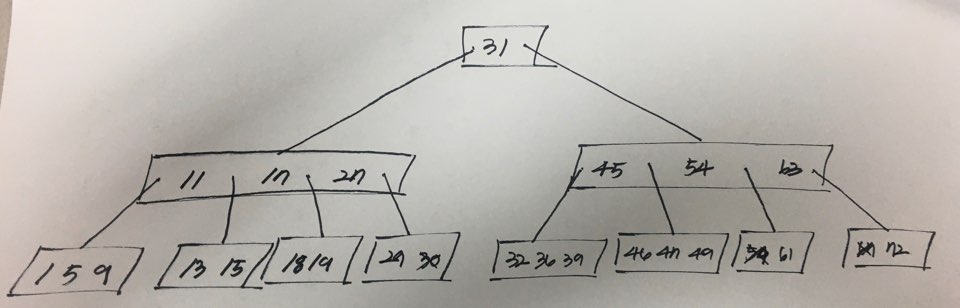 31
11 17 27 45 54 63
1 5 9 13 15 18 19 29 30 32 36 39 46 47 49 61 72